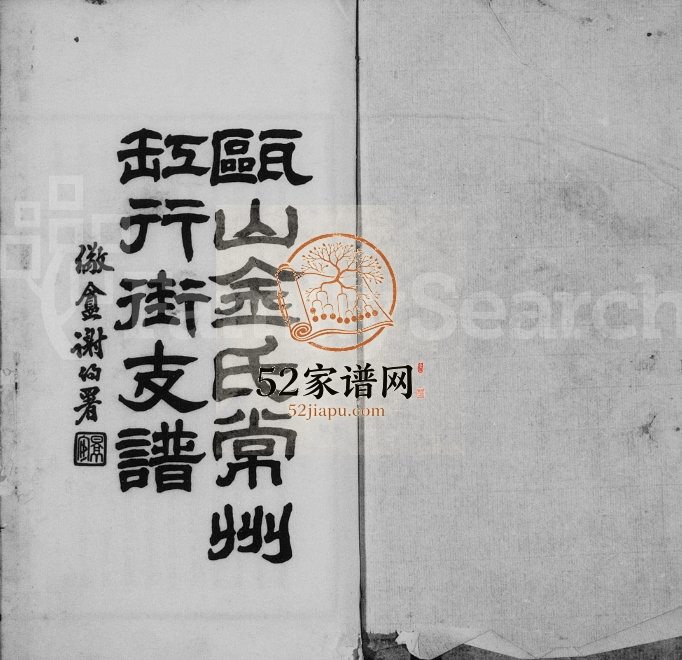 甌山金氏常州
缸行街支譜
謝伯署
Search
52家谱网
52jiapu.com